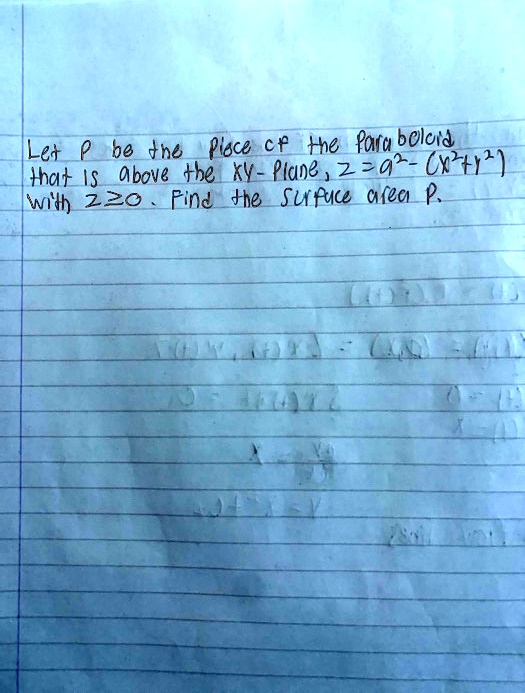 Let P be the Piece of the Paraboloid
that is above the XY-Plane, z = a² - (x²+y²)
with z≥0. Find the Surface area P.